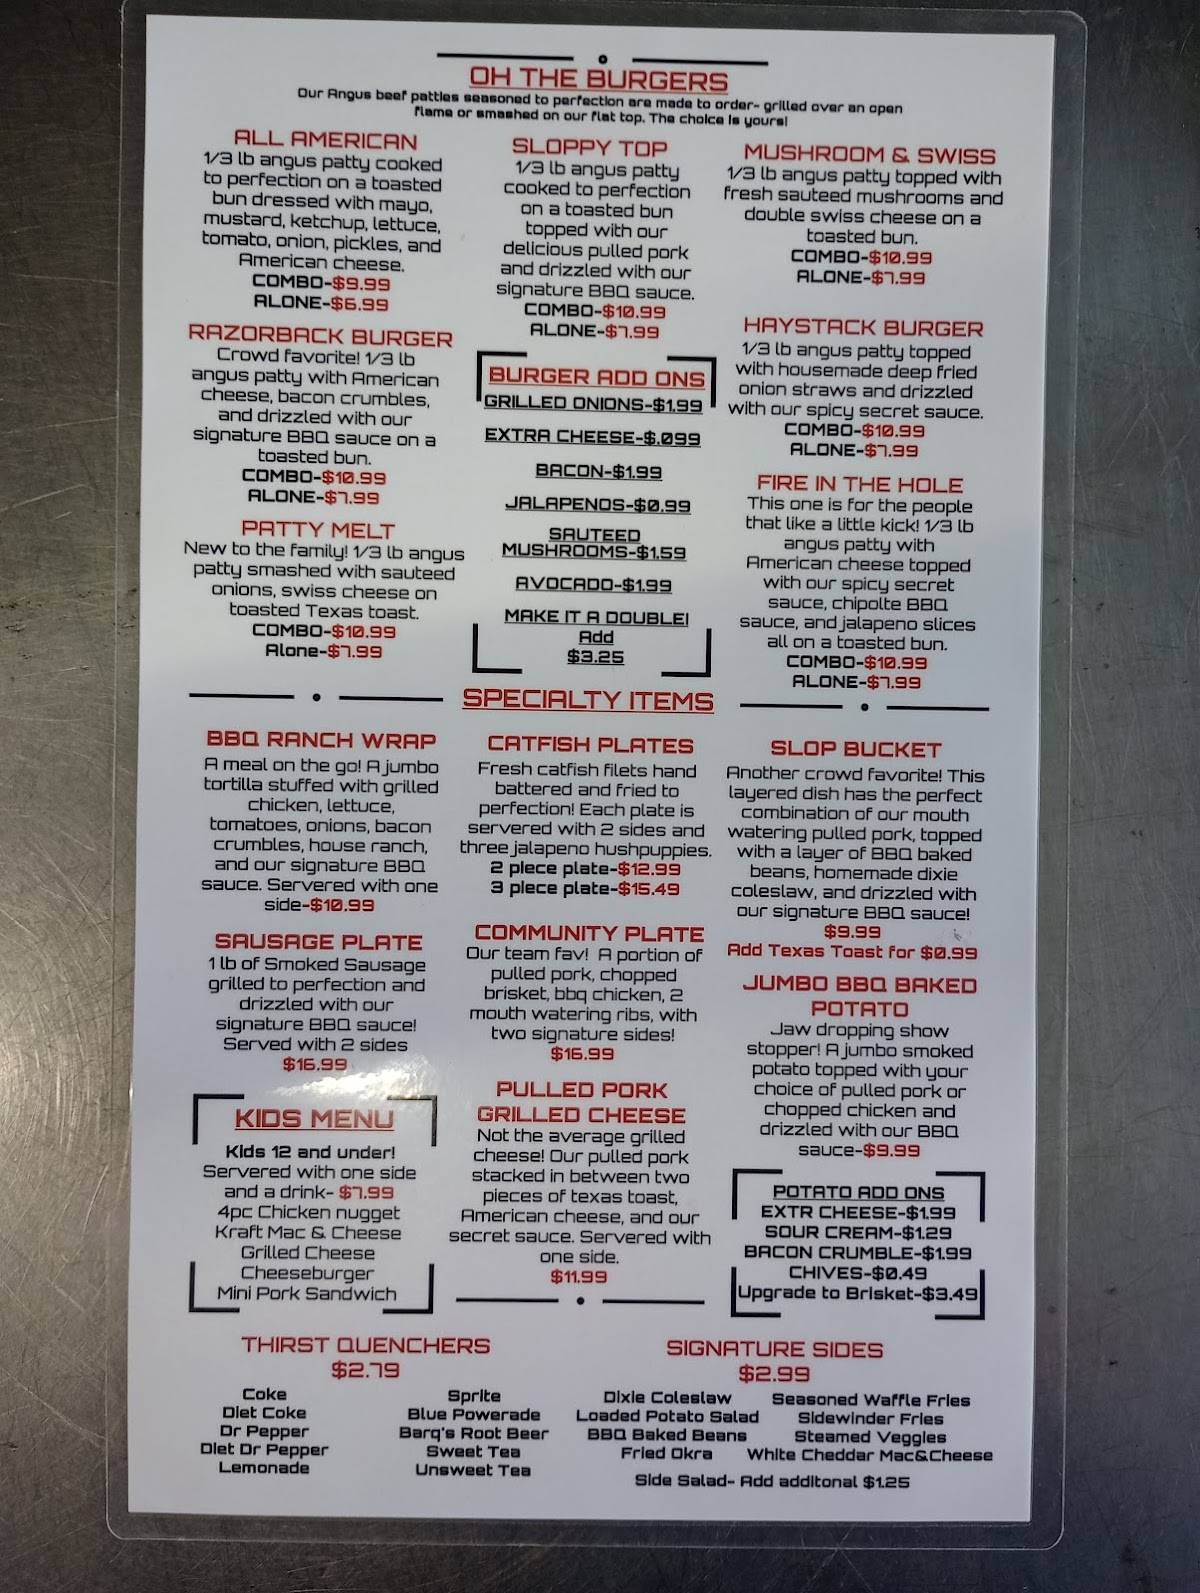 OH THE BURGERS
Our Angus beef patties seasoned to perfection are made to order- grilled over an open
flame or smashed on our flat top. The choice is yours!
ALL AMERICAN
1/3 lb angus patty cooked
to perfection on a toasted
bun dressed with mayo,
mustard, ketchup, lettuce,
tomato, onion, pickles, and
American cheese.
COMBO-$9.99
ALONE-$6.99
RAZORBACK BURGER
Crowd favorite! 1/3 lb
angus patty with American
cheese, bacon crumbles,
and drizzled with our
signature BBQ sauce on a
toasted bun.
COMBO-$10.99
ALONE-$7.99
PATTY MELT
New to the family! 1/3 lb angus
patty smashed with sauteed
onions, swiss cheese on
toasted Texas toast.
COMBO-$10.99
Alone-$7.99
SLOPPY TOP
1/3 lb angus patty
cooked to perfection
on a toasted bun
topped with our
delicious pulled pork
and drizzled with our
signature BBQ sauce.
COMBO-$10.99
ALONE-$7.99
BURGER ADD ONS
GRILLED ONIONS-$1.99
EXTRA CHEESE-$.099
BACON-$1.99
JALAPENOS-$0.99
SAUTEED
MUSHROOMS-$1.59
AVOCADO-$1.99
MAKE IT A DOUBLE!
Add
$3.25
MUSHROOM & SWISS
1/3 lb angus patty topped with
fresh sauteed mushrooms and
double swiss cheese on a
toasted bun.
COMBO-$10.99
ALONE-$7.99
HAYSTACK BURGER
1/3 lb angus patty topped
with housemade deep fried
onion straws and drizzled
with our spicy secret sauce.
COMBO-$10.99
ALONE-$7.99
FIRE IN THE HOLE
This one is for the people
that like a little kick! 1/3 lb
angus patty with
American cheese topped
with our spicy secret
sauce, chipolte BBQ
sauce, and jalapeno slices
all on a toasted bun.
COMBO-$10.99
ALONE-$7.99
SPECIALTY ITEMS
BBQ RANCH WRAP
A meal on the go! A jumbo
tortilla stuffed with grilled
chicken, lettuce,
tomatoes, onions, bacon
crumbles, house ranch,
and our signature BBQ
sauce. Servered with one
side-$10.99
SAUSAGE PLATE
1 lb of Smoked Sausage
grilled to perfection and
drizzled with our
signature BBQ sauce!
Served with 2 sides
$16.99
KIDS MENU
Kids 12 and under!
Servered with one side
and a drink- $7.99
4pc Chicken nugget
Kraft Mac & Cheese
Grilled Cheese
Cheeseburger
Mini Pork Sandwich
CATFISH PLATES
Fresh catfish filets hand
battered and fried to
perfection! Each plate is
servered with 2 sides and
three jalapeno hushpuppies.
2 piece plate-$12.99
3 piece plate-$15.49
COMMUNITY PLATE
Our team fav! A portion of
pulled pork, chopped
brisket, bbq chicken, 2
mouth watering ribs, with
two signature sides!
$16.99
PULLED PORK
GRILLED CHEESE
Not the average grilled
cheese! Our pulled pork
stacked in between two
pieces of texas toast,
American cheese, and our
secret sauce. Servered with
one side.
$11.99
SLOP BUCKET
Another crowd favorite! This
layered dish has the perfect
combination of our mouth
watering pulled pork, topped
with a layer of BBQ baked
beans, homemade dixie
coleslaw, and drizzled with
our signature BBQ sauce!
$9.99
Add Texas Toast for $0.99
JUMBO BBQ BAKED
POTATO
Jaw dropping show
stopper! A jumbo smoked
potato topped with your
choice of pulled pork or
chopped chicken and
drizzled with our BBQ
sauce-$9.99
POTATO ADD ONS
EXTR CHEESE-$1.99
SOUR CREAM-$1.29
BACON CRUMBLE-$1.99
CHIVES-$0.49
Upgrade to Brisket-$3.49
THIRST QUENCHERS
$2.79
Coke
Diet Coke
Dr Pepper
Diet Dr Pepper
Lemonade
Sprite
Blue Powerade
Barq's Root Beer
Sweet Tea
Unsweet Tea
SIGNATURE SIDES
$2.99
Dixie Coleslaw
Loaded Potato Salad
BBQ Baked Beans
Fried Okra
Seasoned Waffle Fries
Sidewinder Fries
Steamed Veggies
White Cheddar Mac&Cheese
Side Salad- Add additonal $1.25